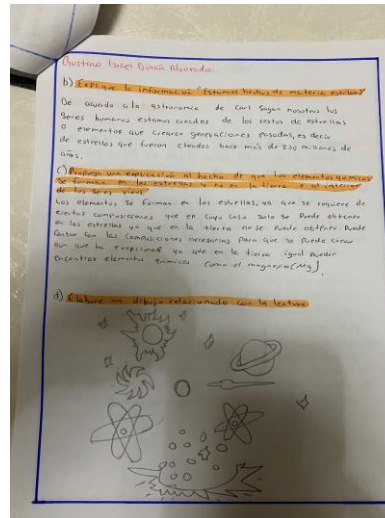 b) Explique la información "Estamos hechos de materia estelar"
De acuerdo a la astronomia de Carl Sagan nosotros los
seres humanos estamos creados de los restos de estrellas
o elementos que crearon generaciones pasadas, es decir
de estrellas que fueron creadas hace más de 230 millones de
años.
c) Proponga una explicación al hecho de que los elementos químicos
se forman en las estrellas y no en la tierra o al interior
de los seres vivos
Los elementos se forman en las estrellas, ya que se requiere de
ciertas composiciones que en cuyo caso solo se puede obtener
en las estrellas ya que en la tierra no se puede obtener. Puede
contar con las composiciones necesarias para que se puede crear
aun que ha excepciones ya que en la tierra igual pueden
encontrar elementos químicos como el magnesio (Mg)
d) Elabore un dibujo relacionado con la lectura